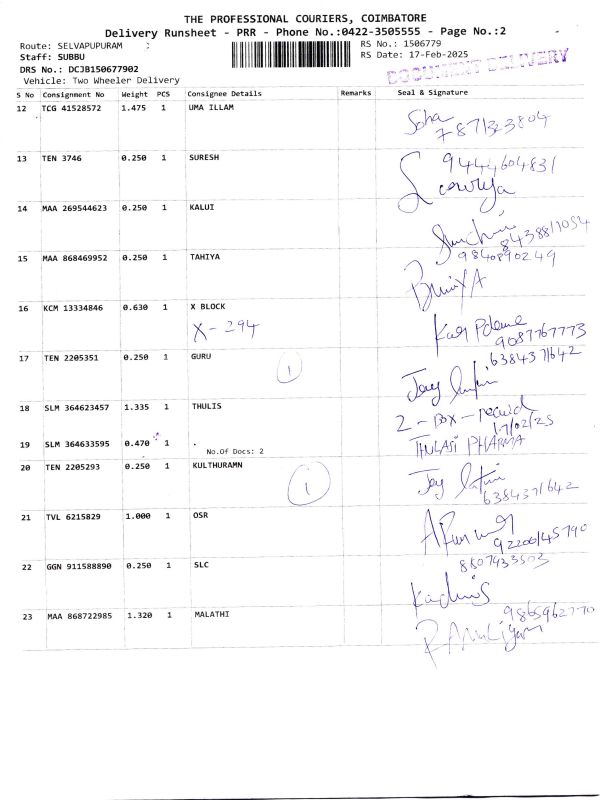 THE PROFESSIONAL COURIERS, COIMBATORE
Delivery Runsheet - PRR - Phone No.:0422-3505555 - Page No.:2
Route: SELVAPUPURAM
RS No.: 1506779
Staff: SUBBU
RS Date: 17-Feb-2025
DRS No.: DCJB150677902
DOCUMENT DELIVERY
Vehicle: Two Wheeler Delivery
S No Consignment No Weight PCS Consignee Details Remarks Seal & Signature
12 TCG 41528572 1.475 1 UMA ILLAM
13 TEN 3746 0.250 1 SURESH
9444604831
14 MAA 269544623 0.250 1 KALUI
15 MAA 868469952 0.250 1 TAHIYA
9840890249
16 KCM 13334846 0.630 1 X BLOCK
X-294
9087767773
17 TEN 2205351 0.250 1 GURU
1
6384371642
18 SLM 364623457 1.335 1 THULIS
2 - Box - 
17/02/25
19 SLM 364633595 0.470 1 .
No.Of Docs: 2
THULASI PHARMA
20 TEN 2205293 0.250 1 KULTHURAMN
1
6384371642
21 TVL 6215829 1.000 1 OSR
22 GGN 911588890 0.250 1 SLC
23 MAA 868722985 1.320 1 MALATHI